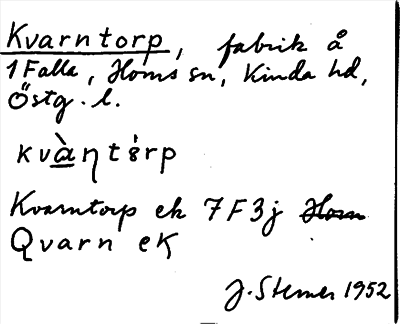 Kvarntorp, fabrik å
1 Falla, Horns sn, Kinda hd,
Östg. l.
kvàn̩tórp
Kvarntorp ek 7F3j Horn
Qvarn eK
J. Sterner 1952